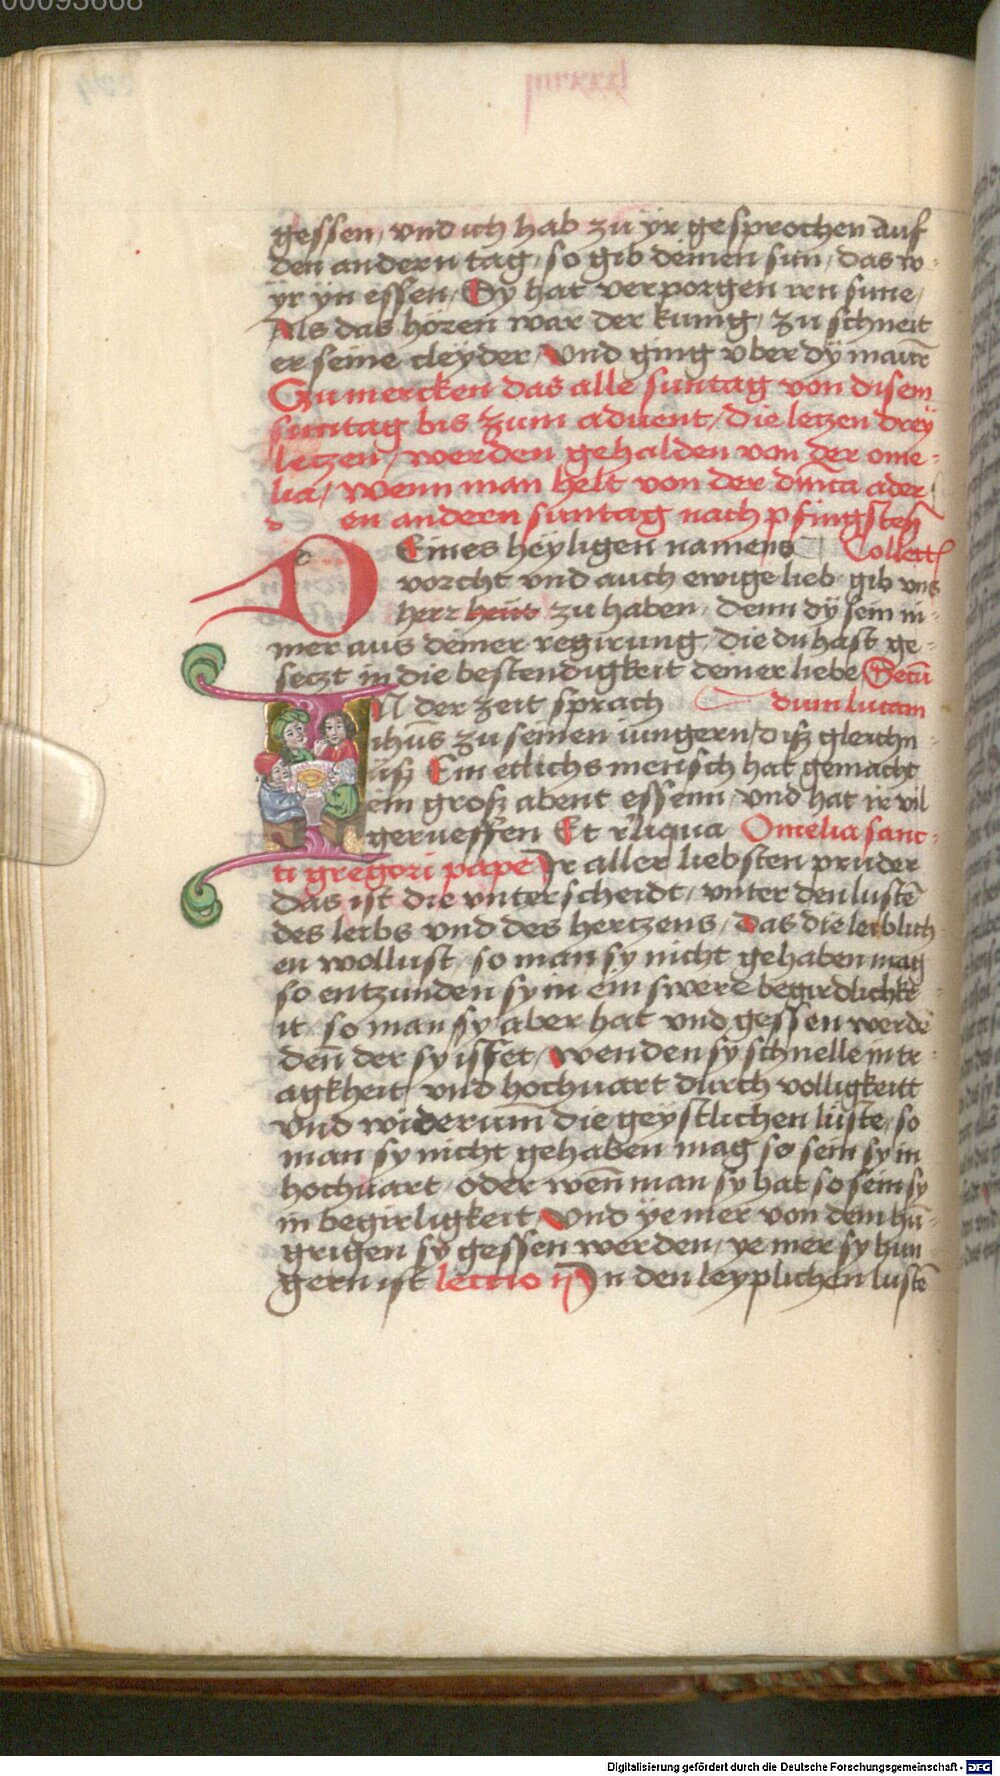 00093668
gessen, vnd ich hab zu ÿr gesprochen Auf
den andern tag, so gib deinen sun, das w-
ÿr ÿn essen, Sy hat verporgen iren sune,
Als das hören war der kunig, zu schneit
er seine cleÿder, Vnd ging vber dÿ maur
Zumercken das alle suntag von disem
suntag bis zum aduent, die letzen dreÿ
letzen, werden gehalden von der ome-
lia, wenn man helt von der dnica ader
en andern suntag nach pfingsten
DEines heÿligen namens Collect
vorcht vnd auch ewige lieb gib vns
herr heut zu haben, denn dÿ sein in-
mer aus deiner regirung, die du hast ge-
setzt in die bestendigkeit deiner liebe Secū
IN der zeit sprach dum lucam
ihūs zu seinen iungern, diß gleichn-
üß Ein etlichs mensch hat gemacht
ein groß abent essenn, vnd hat ir vil
gerueffen Et rliqua Omelia sanc-
ti gregori pape Ir aller liebsten pruder
das ist die vnterscheidt, vnter den lustē
des leibs vnd des hertzens, Das die leiblich
en wollust, so man sy nicht gehaben mag
so entzunden sy in ein swere begirdlichke-
it, so man sy aber hat vnd gessen werdē
den der sy isset, wenden sy schnelle in tr-
agkheit, vnd hochuart durch volligkeitt
Vnd widerum die geÿstlichen lüste, so
man sy nicht gehaben mag so sein sy in
hochuart, oder wen̄ man sy hat so sein sy
in begirligkeit, Vnd ÿe mer von dem hū-
grigen sy gessen werden, ye mer sy hun-
gern ist lectio ij In den leyplichen lustē
Digitalisierung gefördert durch die Deutsche Forschungsgemeinschaft - DFG